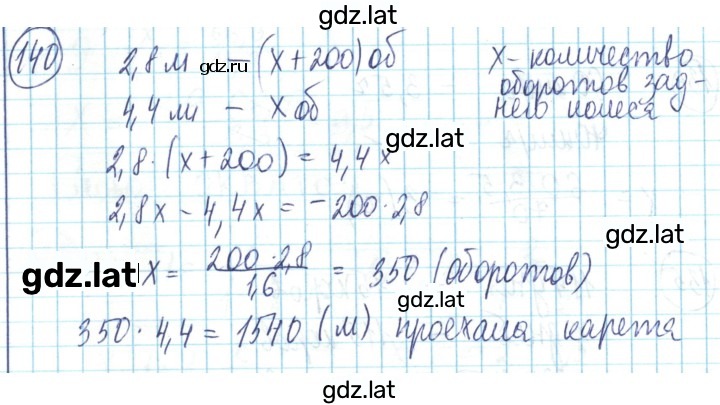 gdz.lat
140 2,8 м gdz.ru — (x+200) об x - количество
оборотов зад-
4,4 м — x об него колеса
gdz.lat
2,8·(x+200) = 4,4x
2,8x - 4,4x = -200·2,8
gdz.lat x = 200·2,8 / 1,6 = 350 (оборотов)
gdz.lat
350·4,4 = 1540 (м) проехала карета
gdz.lat